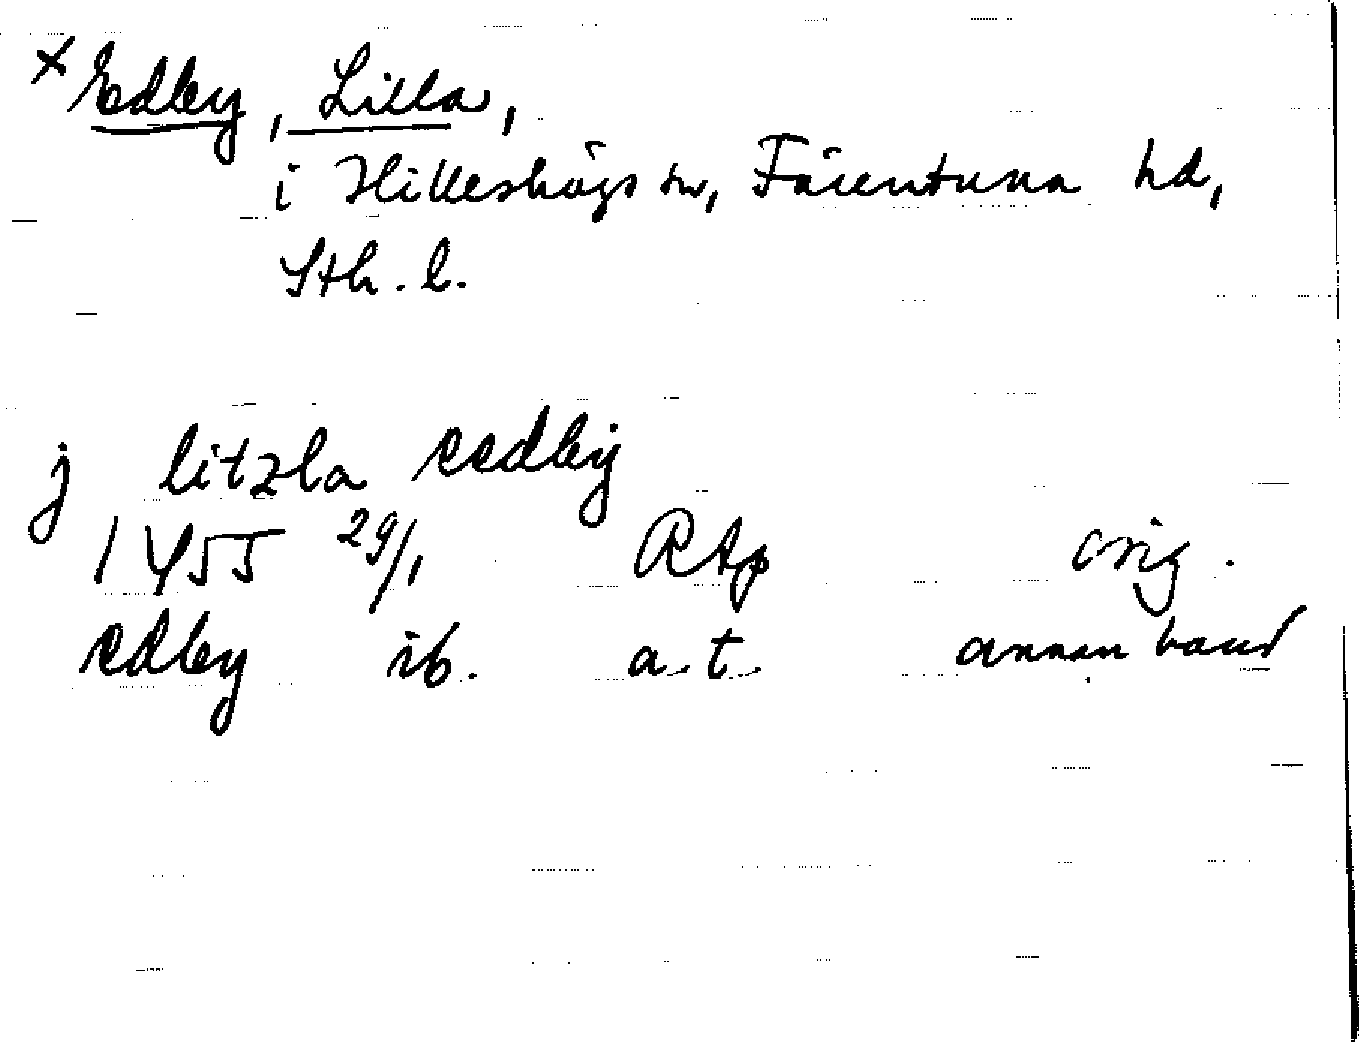 x Edby, Lilla,
i Hilleshögs sn, Färentuna hd,
Sth. l.
j litzla eedbÿ
1455 29/1 RAp orig.
edby ib. a.t. annan hand